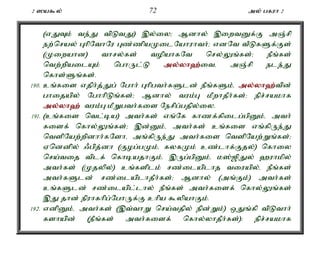 2 ஸயகூல் 72 அல் பகரா 2
(எதுவும் வந்து விடுவது) இல்லை; ஆனால் இறைவனுக்கு அஞ்சி
நற்செயல் புரிவோரே புண்ணியமுடையோராவர்; எனவே வீடுகளுக்குள்
(முறையான) வாசல்கள் வழியாகவே செல்லுங்கள்; நீங்கள்
வெற்றியடையும் பொருட்டு அல்லாஹ்வை அஞ்சி நடந்து
கொள்ளுங்கள்.
190. உங்களை எதிர்த்துப் போர் புரிபவர்களுடன் நீங்களும், அல்லாஹ்வின்
பாதையில் போரிடுங்கள்; ஆனால் வரம்பு மீறாதீர்கள்; நிச்சயமாக
அல்லாஹ் வரம்பு மீறுபவர்களை நேசிப்பதில்லை.
191. (உங்களை வெட்டிய) அவர்கள் எங்கே காணக்கிடைப்பினும், அவர்
களைக் கொல்லுங்கள்; இன்னும், அவர்கள் உங்களை எங்கிருந்து
வெளியேற்றினார்களோ, அங்கிருந்து அவர்களை வெளியேற்றுங்கள்;
ஏனெனில் ஃபித்னா (குழப்பமும், கலகமும் உண்டாக்குதல்) கொலை
செய்வதை விடக் கொடியதாகும். இருப்பினும், மஸ்ஜிதுல் ஹராமில்
அவர்கள் (முதலில்) உங்களிடம் சண்டையிடாத வரையில், நீங்கள்
அவர்களுடன் சண்டையிடாதீர்கள்; ஆனால் (அங்கும்) அவர்கள்
உங்களுடன் சண்டையிட்டால் நீங்கள் அவர்களைக் கொல்லுங்கள்
இது தான் நிராகரிப்போருக்கு உரிய கூலியாகும்.
192. எனினும், அவர்கள் (இவ்வாறு செய்வதில் நின்றும்) ஒதுங்கி விடுவார்
களாயின் (நீங்கள் அவர்களைக் கொல்லாதீர்கள்); நிச்சயமாக